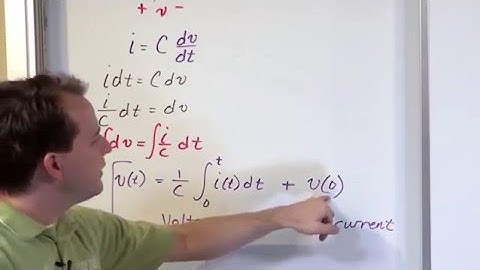 + v -
i = C dv/dt
idt = Cdv
i/C dt = dv
∫dv = ∫ i/C dt
v(t) = 1/C ∫₀ᵗ i(t)dt + v(0)
current